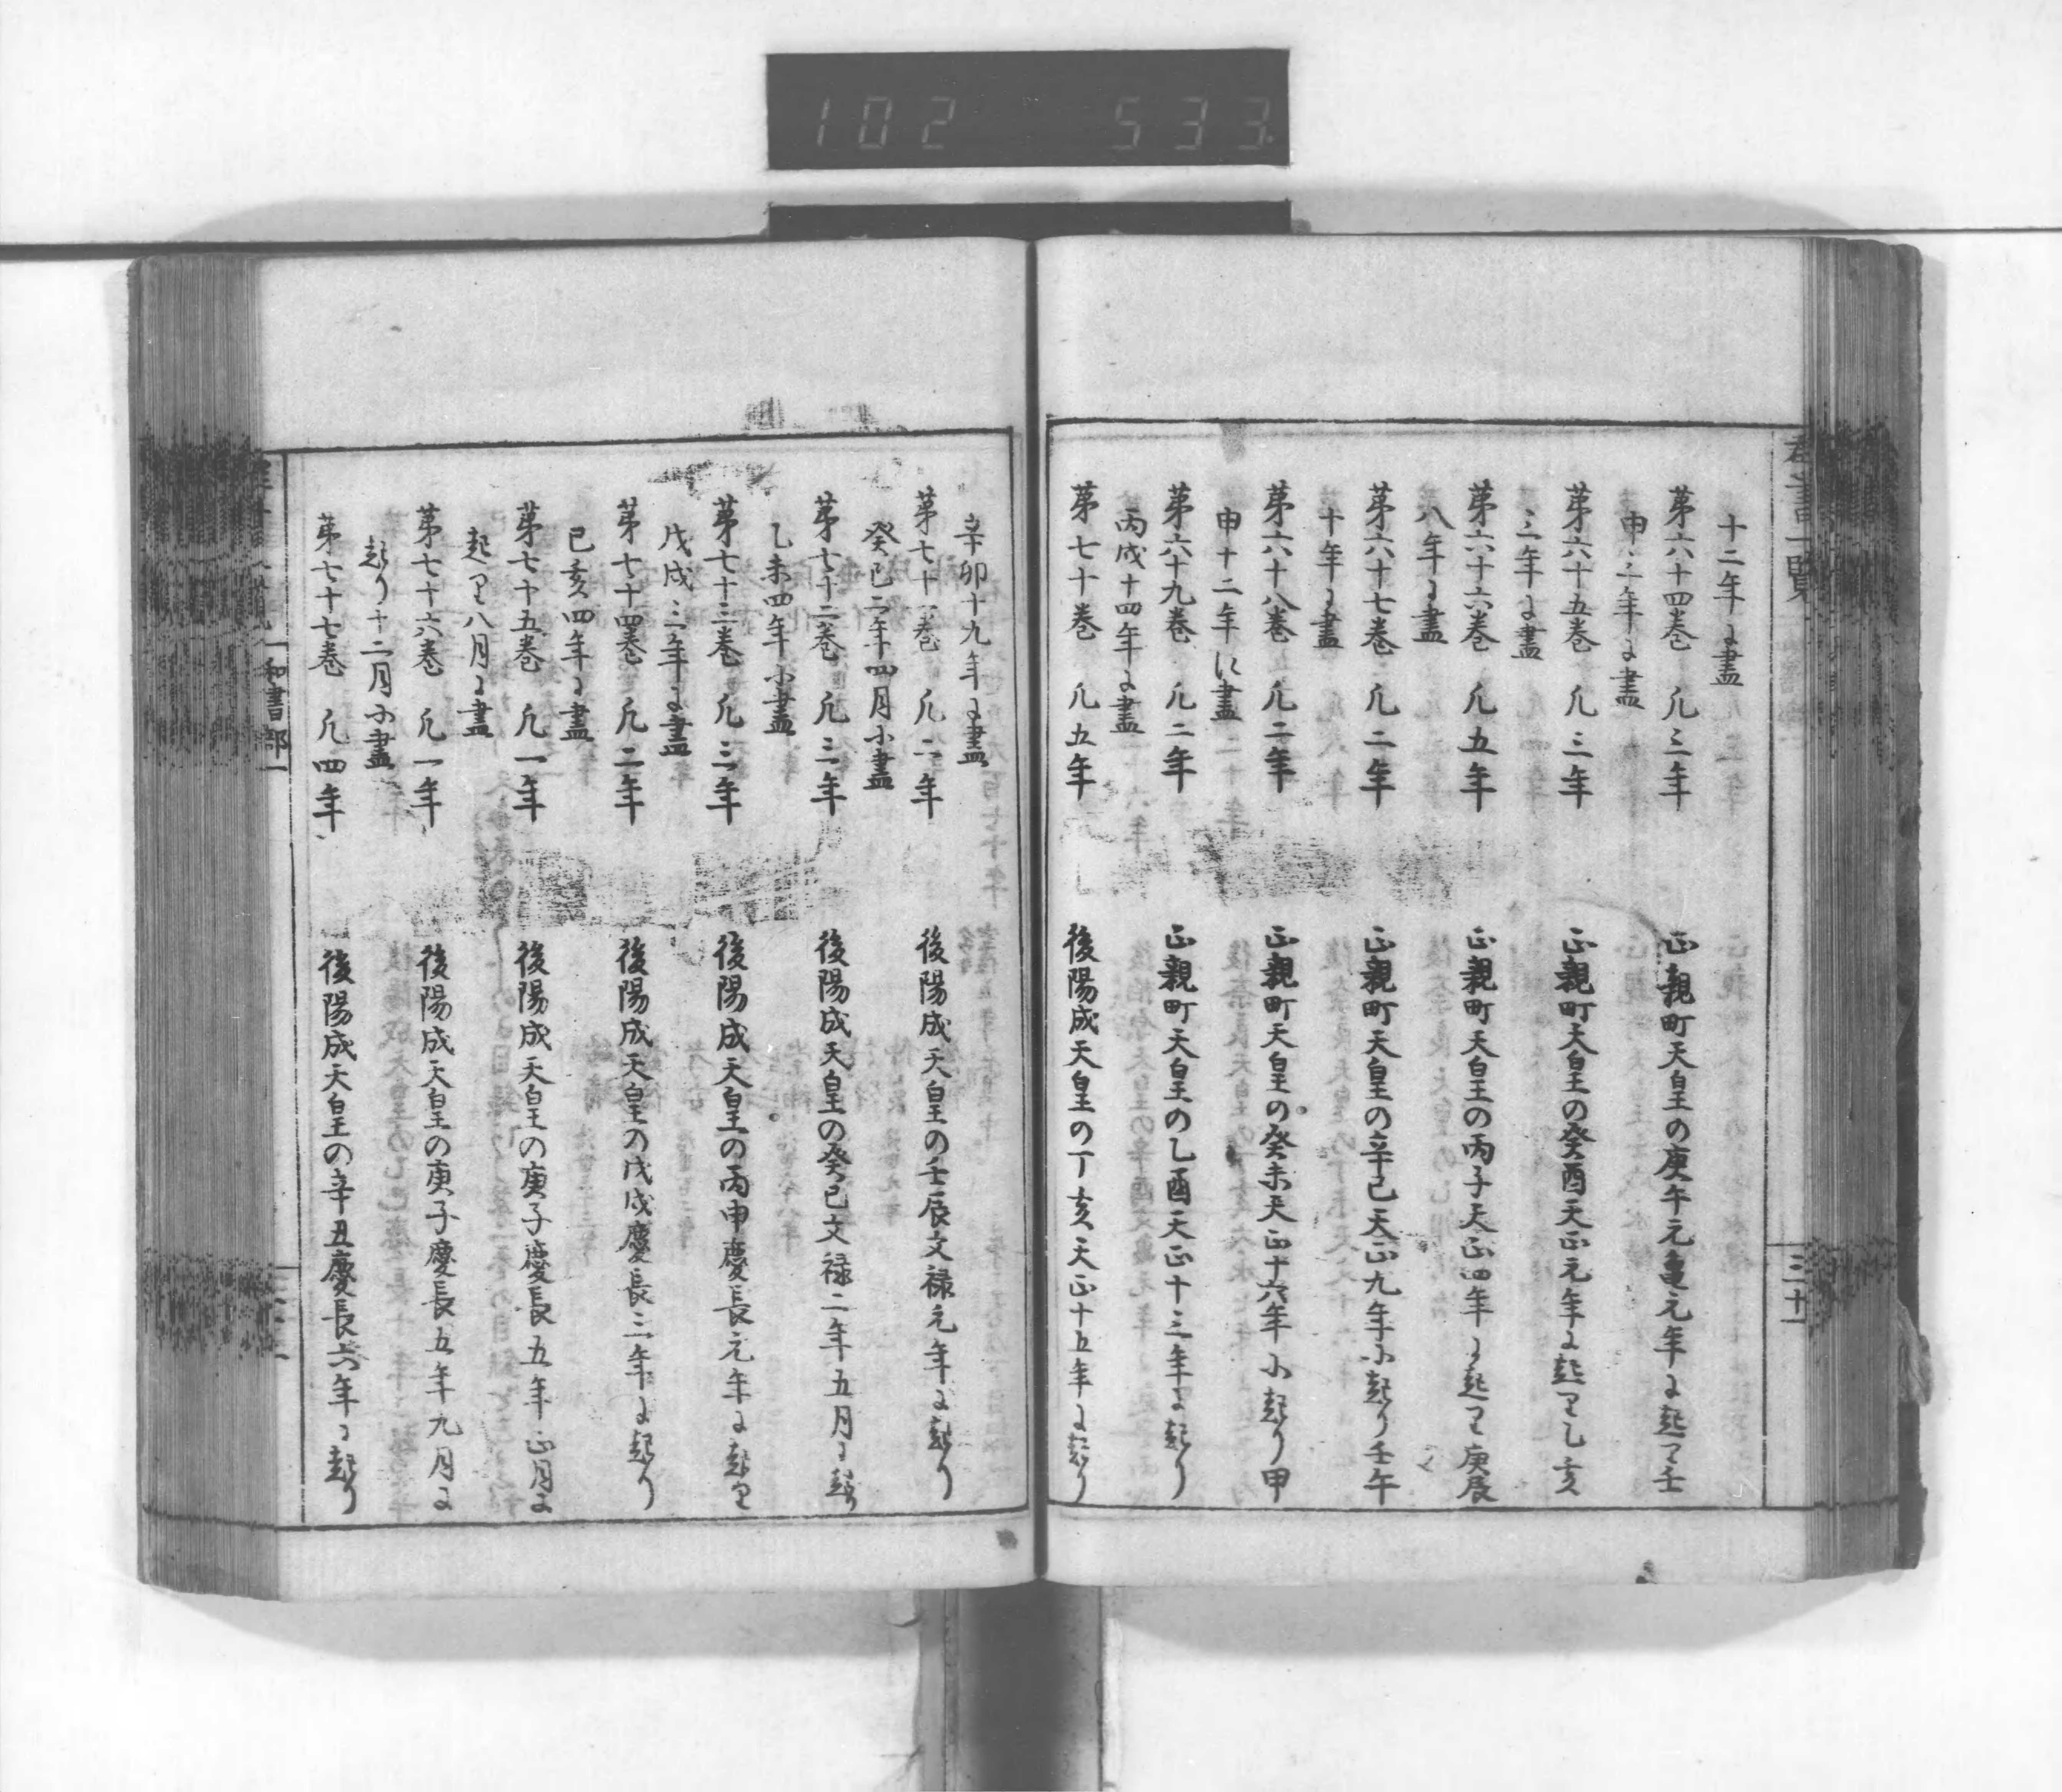 102 533
十二年に盡
第六十四巻 凡三年 正親町天皇の庚午元亀元年に起り壬
申三年に盡
第六十五巻 凡三年 正親町天皇の癸酉天正元年に起り乙亥
三年に盡
第六十六巻 凡五年 正親町天皇の丙子天正四年に起り庚辰
八年に盡
第六十七巻 凡二年 正親町天皇の辛巳天正九年に起り壬午
十年に盡
第六十八巻 凡二年 正親町天皇の癸未天正十六年に起り甲
申十二年に盡
第六十九巻 凡二年 正親町天皇の乙酉天正十三年に起り
丙戌十四年に盡
第七十巻 凡五年 後陽成天皇の丁亥天正十五年に起り
辛卯十九年に盡
第七十一巻 凡二年 後陽成天皇の壬辰文禄元年に起り
癸巳二年四月に盡
第七十二巻 凡三年 後陽成天皇の癸巳文禄二年五月に起り
乙未四年に盡
第七十三巻 凡三年 後陽成天皇の丙申慶長元年に起り
戊戌三年に盡
第七十四巻 凡二年 後陽成天皇の戊戌慶長三年に起り
己亥四年に盡
第七十五巻 凡一年 後陽成天皇の庚子慶長五年正月に
起り八月に盡
第七十六巻 凡一年 後陽成天皇の庚子慶長五年九月に
起り十二月に盡
第七十七巻 凡四年 後陽成天皇の辛丑慶長六年に起り
和書部一